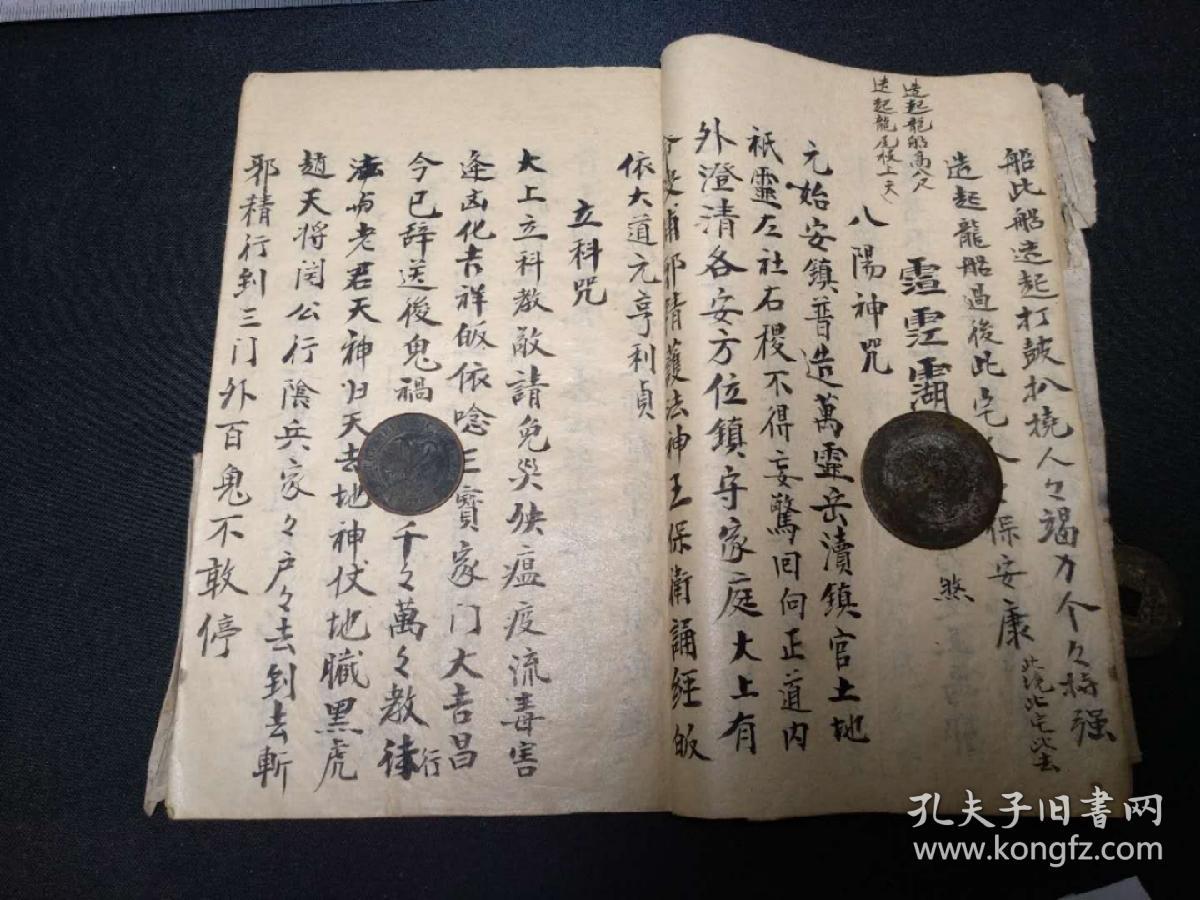 船此船造起打鼓扒橈人々竭力个々称强
造起龍船過後此宅人 保安康
范此宅此去
造起龍船高八尺
造起龍尾校上天
霊霐湖
煞
八陽神咒
元始安鎮普造萬霊岳瀆鎮官土地
祇靈左社右稷不得妄驚回向正道内
外澄清各安方位鎮守家庭大上有
邪精護法神王保衛誦經皈
依大道元亨利貞
立科咒
大上立科教敢請免災殃瘟疫流毒害
逢凶化吉祥皈依唸三寶家门大吉昌
今已辞送後鬼禍 千々萬々教徒行
法 老君天神归天去地神伏地職黑虎
趙天将関公行陰兵家々户々去到去斬
邪精行到三门外百鬼不敢停
孔夫子旧书网
www.kongfz.com